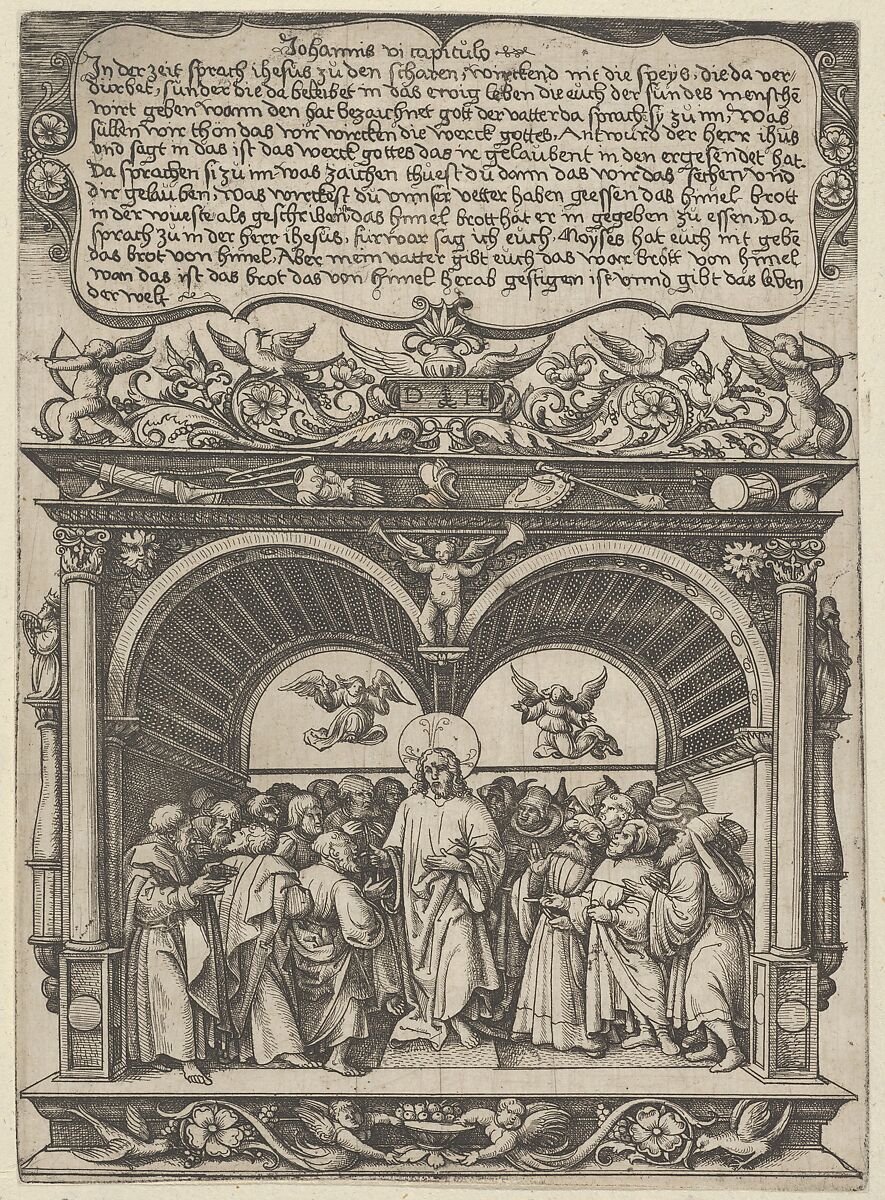 Johannis vi capitulo
In der zeit sprach ihesus zu den scharen, wirckend nit die speys, die da ver-
durbet, sunder die da beleibet in das ewig leben die euch der sun des menschē
wirt geben wann den hat bezaichnet gott der vatter da sprach sy zu im, was
sullen wir thon das wir wircken die werck gottes, Antwurd der herr ihus
vnd sagt in das ist das werck gottes das ir gelaubent in den er gesendet hat.
Da sprachen si zu im was zaichen thuest du dann das wir das sechen vnd
dir gelauben, was wirckest du vnnser vetter haben geessen das himel brott
in der wueste als geschriben das himel brott hat er in gegeben zu essen, Da
sprach zu in der herr ihesus, furwar sag ich euch, Moyses hat euch nit gebē
das brot von himel, Aber mein vatter gibt euch das war brott von himel
wan das ist das brot das von himel herab gestigen ist vnnd gibt das leben
der welt
D H